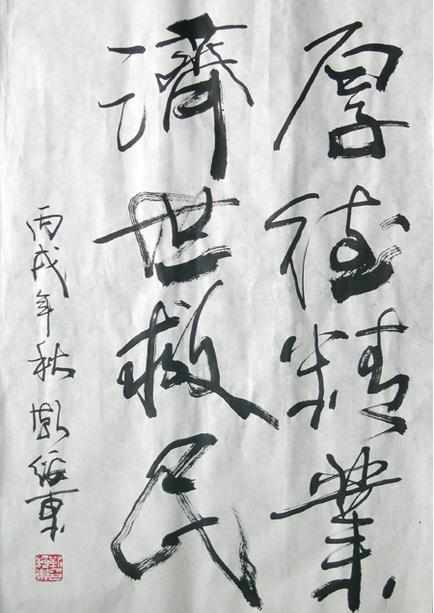 厚德精業
濟世救民
丙戌年秋 東